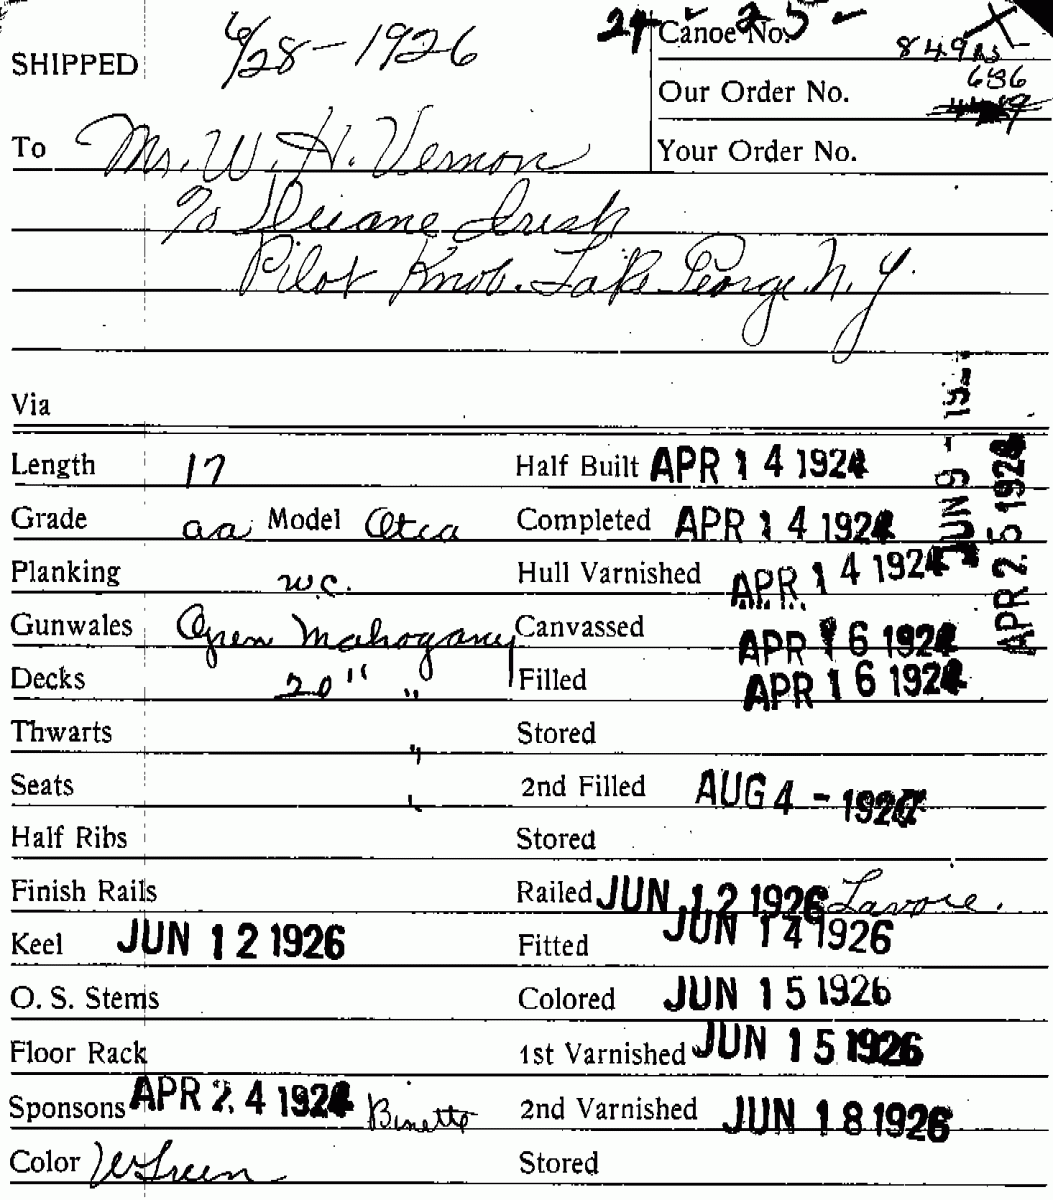 24 - 25 -
Canoe No.
SHIPPED 6/28-1926
Our Order No. 686
To Mr. W. H. Vernon
Your Order No.
c/o Duane Irish
Pilot Knob. Lake George. N. Y.
Via
Length 17 Half Built APR 14 1924
Grade aa Model Otca Completed APR 14 1924
Planking w.c. Hull Varnished APR 14 1924
JUN 9 - 19
APR 25 1924
Gunwales Open Mahogany Canvassed APR 16 1924
Decks 20" " Filled APR 16 1924
Thwarts " Stored
Seats 2nd Filled AUG 4 - 192
Half Ribs Stored
Finish Rails Railed JUN 12 1926 Lavoie.
Keel JUN 12 1926 Fitted JUN 14 1926
O. S. Stems Colored JUN 15 1926
Floor Rack 1st Varnished JUN 15 1926
Sponsons APR 24 1924 Binette 2nd Varnished JUN 18 1926
Color Green Stored